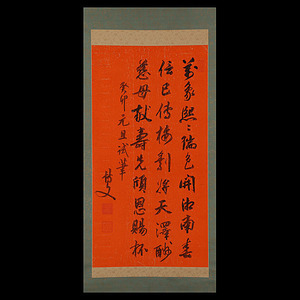 萬象熙〻瑞色開湘南春
信已傳梅將天澤酬
慈母献壽先傾恩賜杯
癸卯元旦試筆